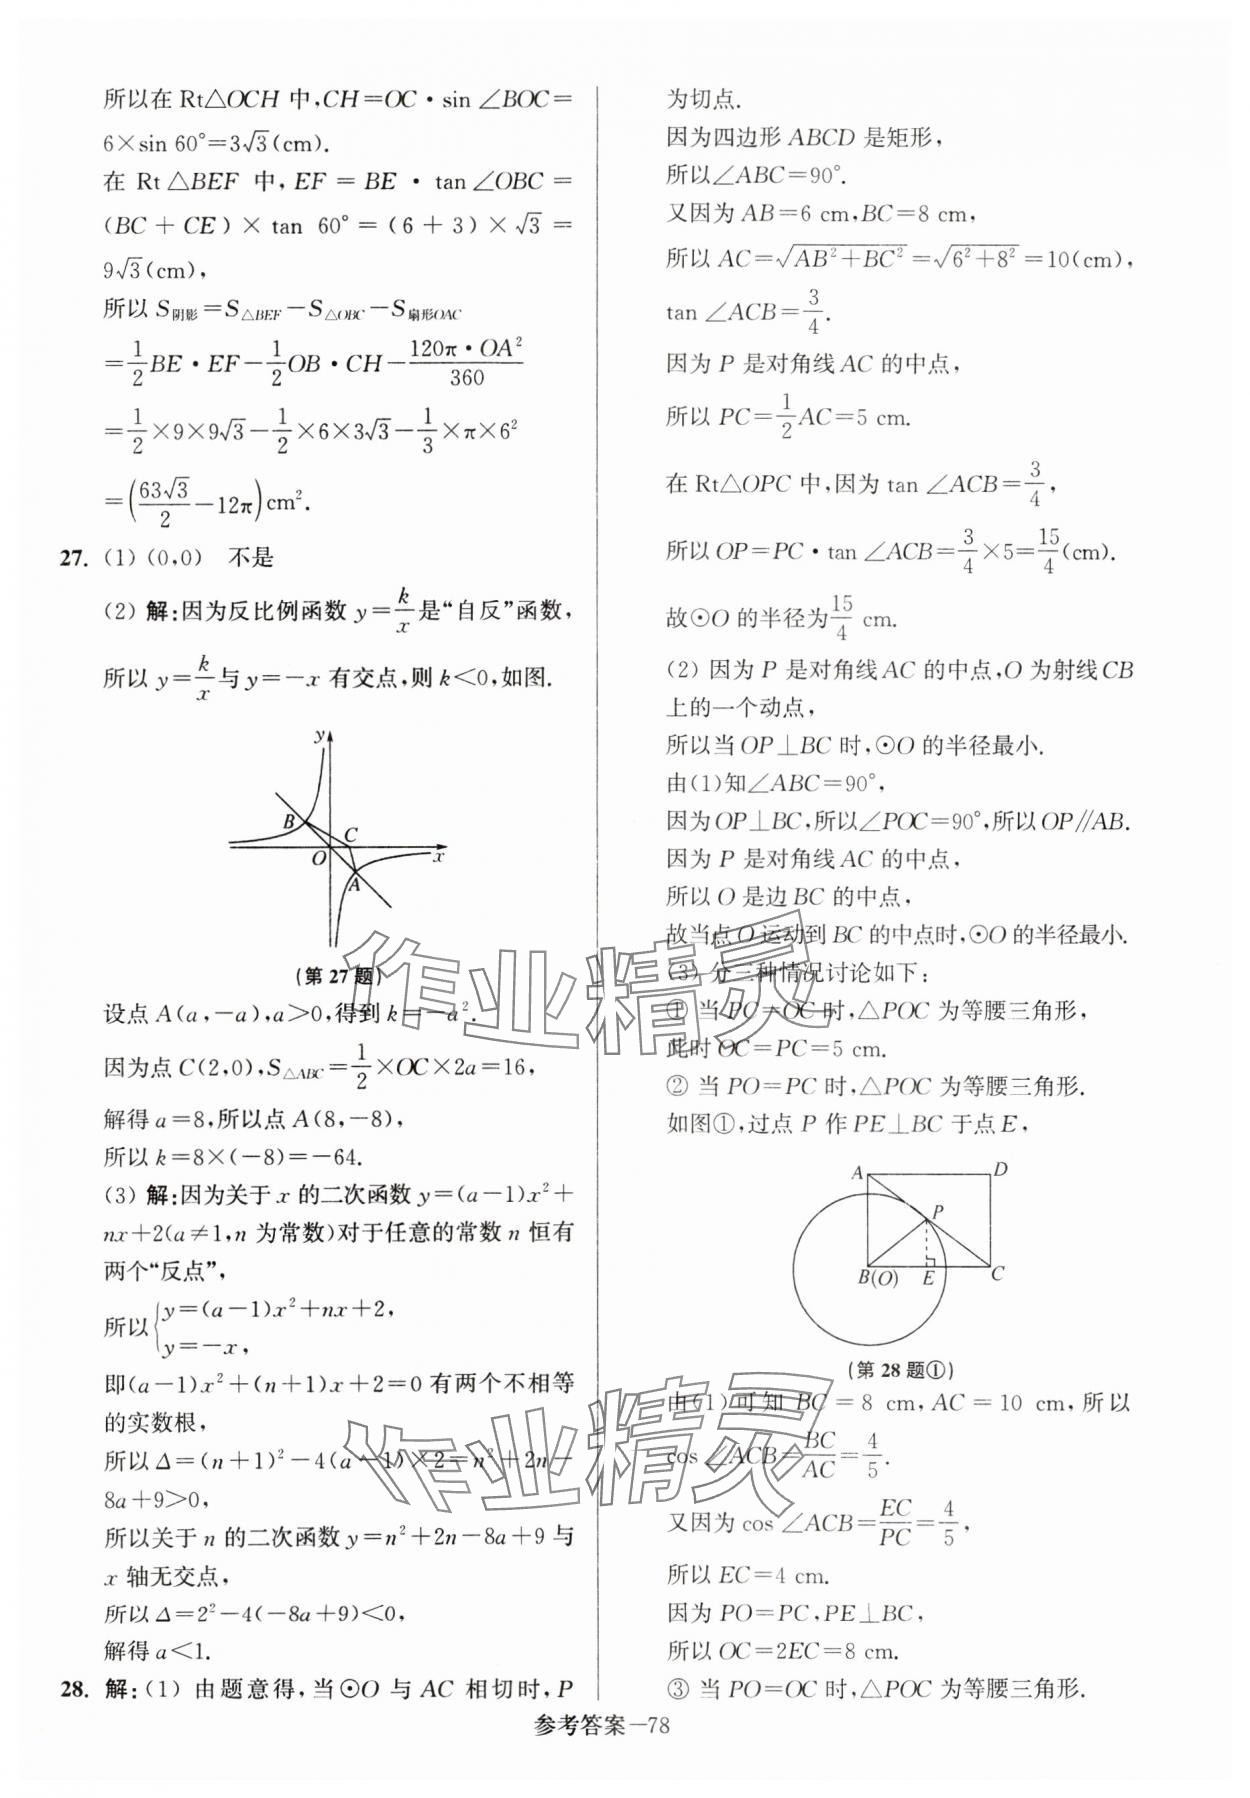 所以在 Rt△OCH 中,CH=OC·sin ∠BOC=
6×sin 60°=3√3(cm).
在 Rt△BEF 中,EF=BE·tan∠OBC=
(BC+CE)×tan 60°=(6+3)×√3=
9√3(cm),
所以 S阴影=S△BEF-S△OBC-S扇形OAC
=1/2BE·EF-1/2OB·CH-120π·OA²/360
=1/2×9×9√3-1/2×6×3√3-1/3×π×6²
=(63√3/2-12π)cm².
27. (1) (0,0) 不是
(2) 解:因为反比例函数 y=k/x是“自反”函数,
所以 y=k/x与 y=-x 有交点,则 k<0,如图.
y
B
C
O
x
A
(第 27 题)
设点 A(a,-a),a>0,得到 k=-a².
因为点 C(2,0),S△ABC=1/2×OC×2a=16,
解得 a=8,所以点 A(8,-8),
所以 k=8×(-8)=-64.
(3) 解:因为关于 x 的二次函数 y=(a-1)x²+
nx+2(a≠1,n 为常数)对于任意的常数 n 恒有
两个“反点”,
所以{y=(a-1)x²+nx+2,
y=-x,
即(a-1)x²+(n+1)x+2=0 有两个不相等
的实数根,
所以 Δ=(n+1)²-4(a-1)×2=n²+2n-
8a+9>0,
所以关于 n 的二次函数 y=n²+2n-8a+9 与
x 轴无交点,
所以 Δ=2²-4(-8a+9)<0,
解得 a<1.
28. 解:(1) 由题意得,当⊙O 与 AC 相切时,P
为切点.
因为四边形 ABCD 是矩形,
所以∠ABC=90°.
又因为 AB=6 cm,BC=8 cm,
所以 AC=√(AB²+BC²)=√(6²+8²)=10(cm),
tan ∠ACB=3/4.
因为 P 是对角线 AC 的中点,
所以 PC=1/2AC=5 cm.
在 Rt△OPC 中,因为 tan ∠ACB=3/4,
所以 OP=PC·tan ∠ACB=3/4×5=15/4(cm).
故⊙O 的半径为15/4 cm.
(2) 因为 P 是对角线 AC 的中点,O 为射线 CB
上的一个动点,
所以当 OP⊥BC 时,⊙O 的半径最小.
由(1)知∠ABC=90°,
因为 OP⊥BC,所以∠POC=90°,所以 OP∥AB.
因为 P 是对角线 AC 的中点,
所以 O 是边 BC 的中点,
故当点 O 运动到 BC 的中点时,⊙O 的半径最小.
(3) 分三种情况讨论如下:
① 当 PC=OC 时,△POC 为等腰三角形,
此时 OC=PC=5 cm.
② 当 PO=PC 时,△POC 为等腰三角形.
如图①,过点 P 作 PE⊥BC 于点 E,
A
D
P
B(O)
E
C
(第 28 题①)
由(1)可知 BC=8 cm,AC=10 cm,所以
cos ∠ACB=BC/AC=4/5.
又因为 cos ∠ACB=EC/PC=4/5,
所以 EC=4 cm.
因为 PO=PC,PE⊥BC,
所以 OC=2EC=8 cm.
③ 当 PO=OC 时,△POC 为等腰三角形.
参考答案—78
作业精灵
作业精灵